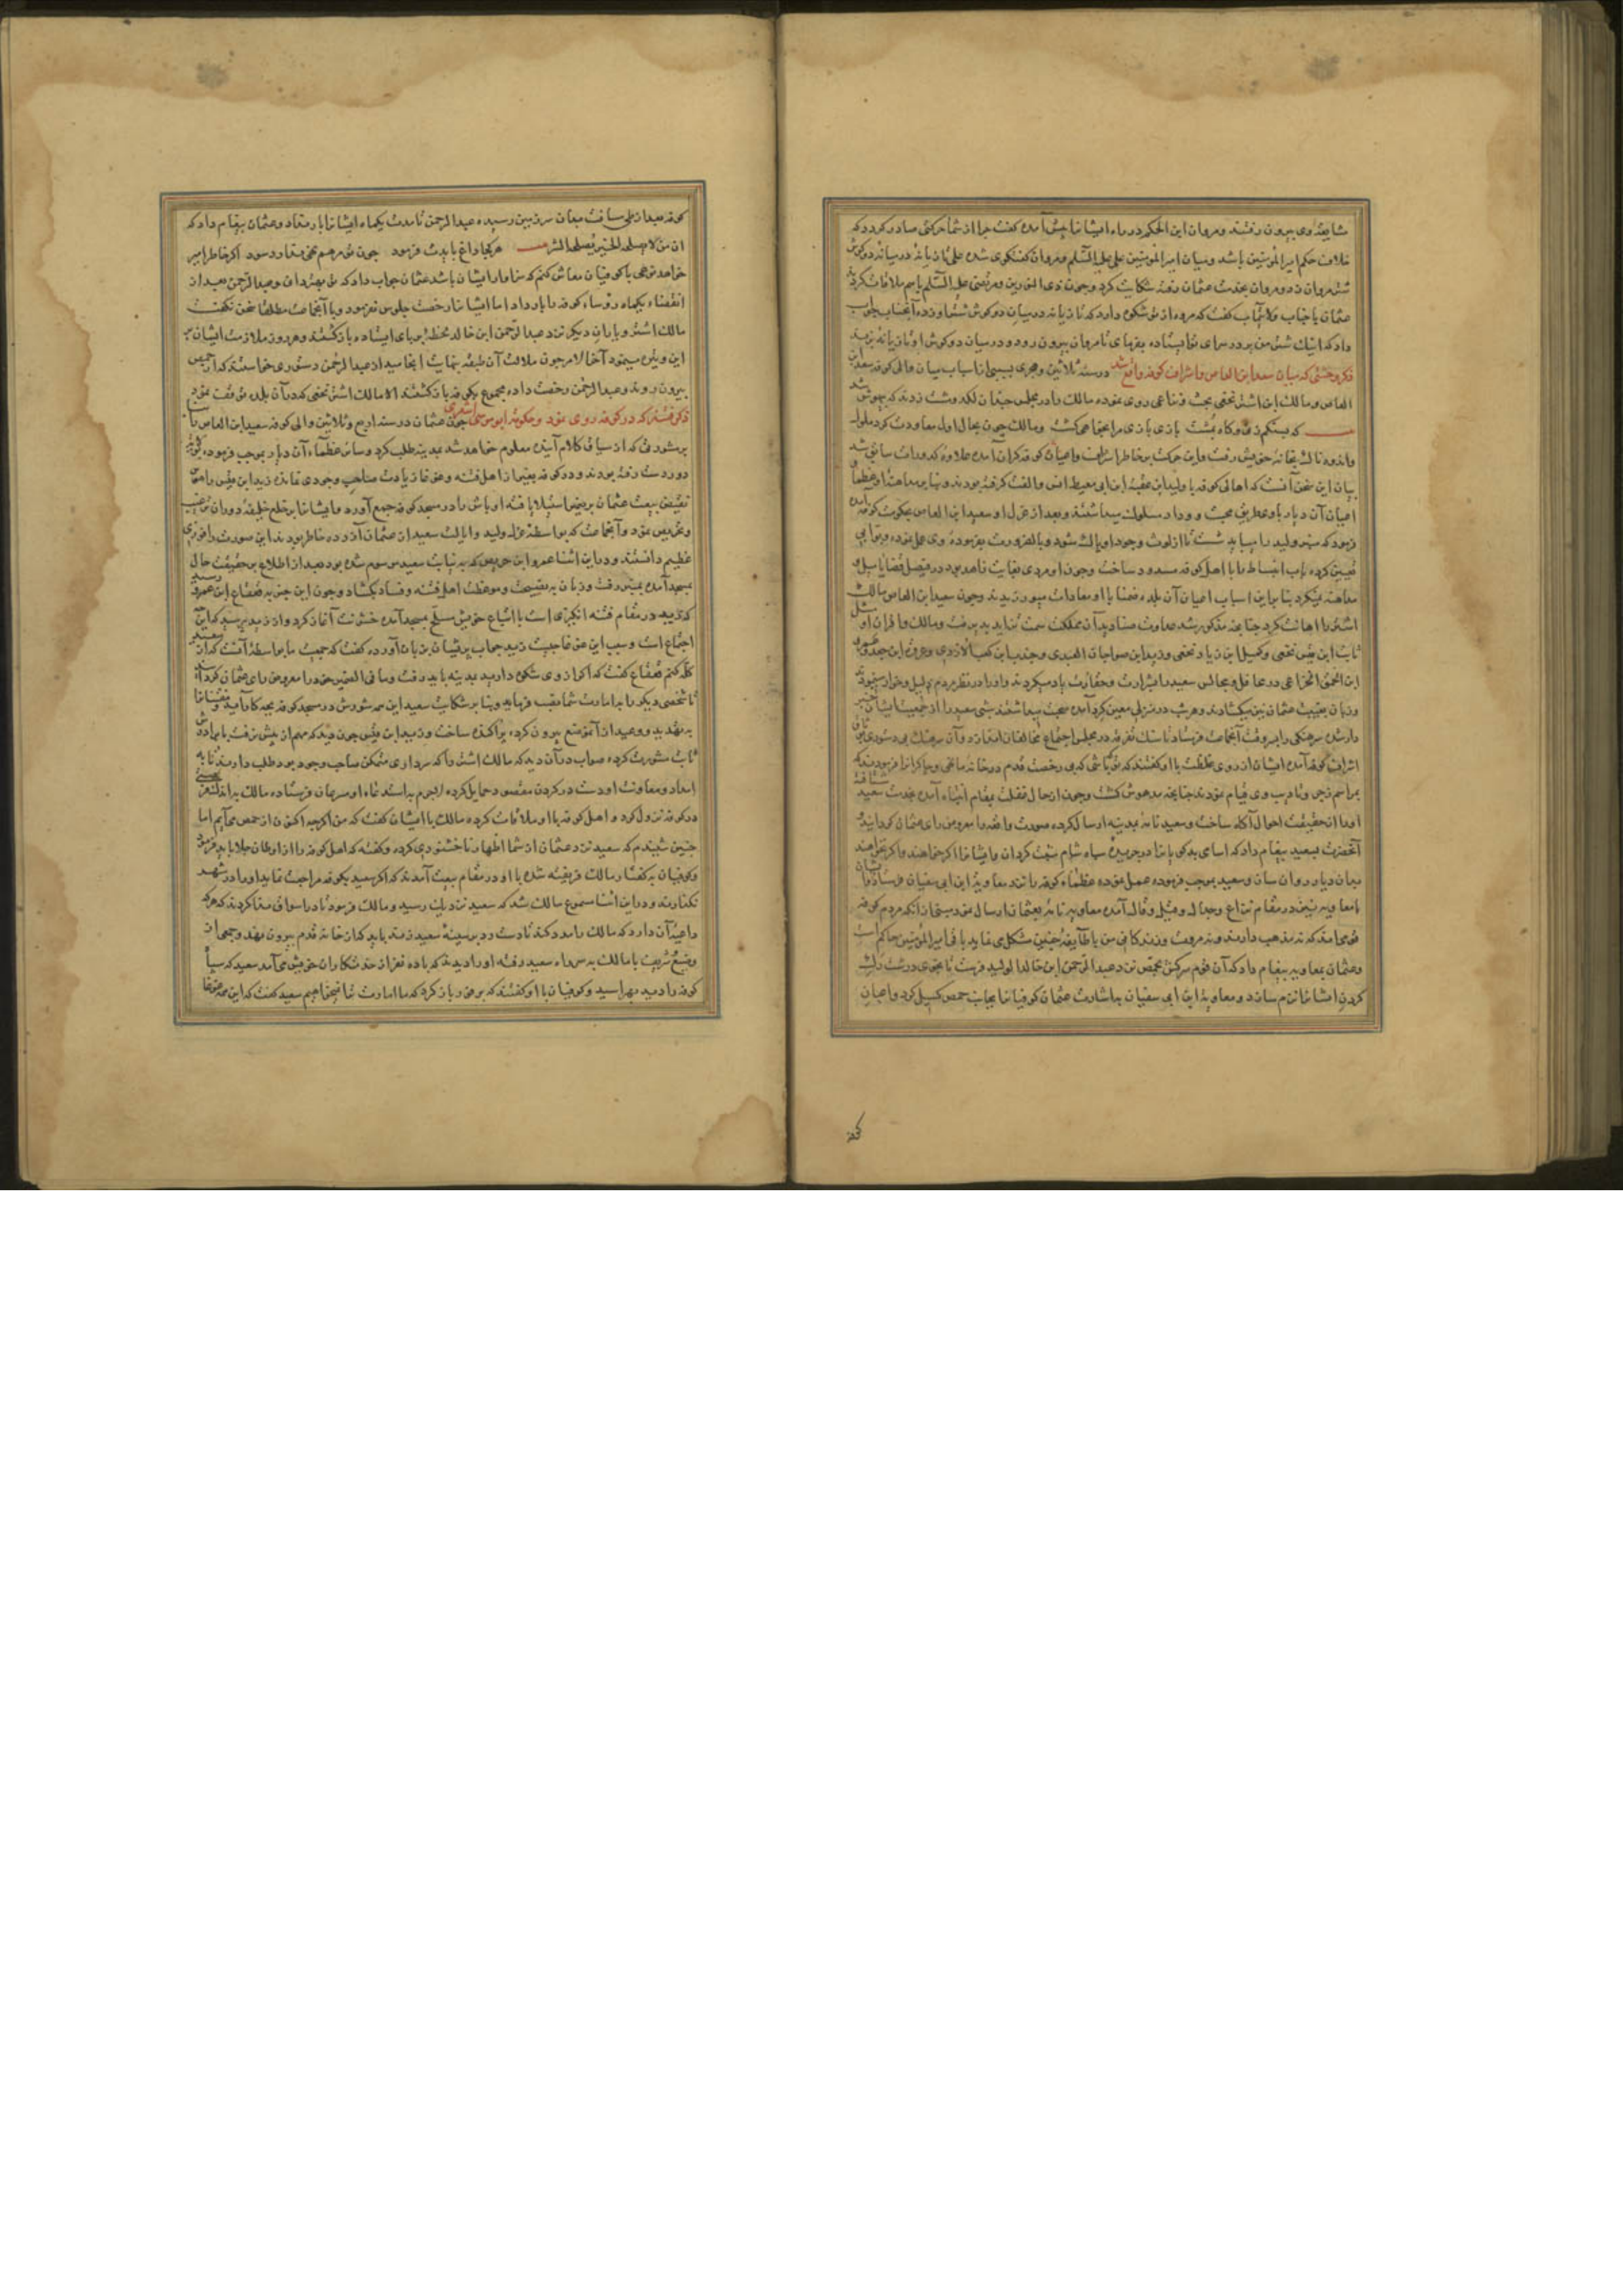 مشایعهٔ وی بیرون رفتند و مروان ابن الحکم در راه ایشانرا پیش آمده گفت چرا از شما حرکتی صادر کردد که
خلاف حکم امیرالمؤمنین باشد و میان امیرالمؤمنین علی علیه السّلم و مروان کفتکوی شده علی تازیانه در میانهٔ دو کوش
شتر مروان زد و مروان بخدمت عثمان رفته شکایت کرد و چون ذی النورین و مرتضی علیه السّلم باهم ملاقات کردند
عثمان با جناب ولایتمآب کفت که مروان از تو شکوه دارد که تازیانه در میان دو کوش شتر او زده آنجناب جواب
داد که اینک شتر من بر در سرای تو ایستاده بفرمای تا مروان بیرون رود و در میان دو کوش او تازیانه بزند
ذکر وحشتی که میان سعید ابن العاص و اشراف کوفه واقع شد در سنه ثلاثین هجری بسببی از اسباب میان والی کوفه سعید ابن
العاص و مالک ابن اشتر نخعی بحث و نزاعی روی نموده مالک را در مجلس چندان لکد و مشت زدند که بیهوش شد
که بشکم زد و کاه بپشت بازی بازی مرا بخواهی کشت و مالک چون بحال اول معاودت کرد ملول
واندوه ناک بخانهٔ خویش رفت و این حرکت بر خاطر اشراف و اعیان کوفه کران آمده علاوهٔ کدورات سابق شد
بیان این سخن آنست که اهالی کوفه با ولید ابن عقبه ابن ابی معیط انس و الفت کرفته بودند و بنا بر مداهنهٔ او عظما و
اعیان آن دیار با وی طریق محبت و وداد مسلوک میداشتند و بعد از عزل او سعید ابن العاص بحکومت کوفه آمده
فرمود که منبر ولید را میباید شست تا از لوث وجود او پاک شود
تعیین کرده باب انبساط را با اهل کوفه مسدود ساخت و چون او مردی بغایت زاهد بود در فیصل قضایا میل و
مداهنه نمیکرد بنا براین اسباب اعیان آن بلده ضمنا با او معادات میورزیدند و چون سعید ابن العاص مالک
اشتر را اهانت کرد چنانچه مذکور شد عداوت صنادید آن مملکت سمت تزاید پذیرفت و مالک و اقران او مثل
ثابت ابن قیس نخعی و کمیل ابن زیاد نخعی و زید ابن صوحان العبدی و جندب ابن کعب الازدی و عروة ابن جعد و عمرو
ابن الحمق الخزاعی در محافل و مجالس سعید را بشرارت و حقارت یاد میکردند و او را در نظر مردم ذلیل و خوار مینمودند
و زبان بغیبت عثمان نیز میکشادند و هر شب در منزلی معین کرد آمده صحبت میداشتند شبی سعید را از جمعیت ایشان خبر
دار شده سرهنکی را بر وفق آنجماعت فرستاد
اشراف کوفه آمده ایشان از روی غلظت با او کفتند که تو کیستی که بی رخصت قدم در خانه ما نهی و چاکرانرا فرمودند که
بمراسم زجر و تادیب وی قیام نمودند چنانچه مدهوش کشت و چون از حال غفلت بمقام انتباه آمده بخدمت سعید شتافته
او را از حقیقت احوال آکاه ساخت و سعید نامه بمدینه ارسال کرده صورت واقعه را معروض رای عثمان کردانید
آنحضرت بسعید پیغام داد که اسامی بدکویانرا در جریدهٔ سپاه شام مثبت کردان و ایشانرا اکر خواهند واکر نخواهند
بدان دیار روان سازد و سعید بموجب فرموده عمل نموده عظماء کوفه را نزد معاویه ابن ابی سفیان فرستاد و ایشان
با معاویه نیز در مقام نزاع و جدال و قیل و قال آمده معاویه نامه بعثمان ارسال نمود مبنی از آنکه مردم کوفه
قومی اند که نه مذهب دارند و نه مروت و زندکانی من با طایفهٔ چنین مشکل مینماید باقی امیرالمؤمنین حاکم است
و عثمان بمعاویه پیغام داد که آن قوم سرکش بحمص نزد عبدالرحمن ابن خالد الولید فرست تا بخوی درشت
کردن ایشانرا نرم سازد و معاویه ابن ابی سفیان باشارت عثمان کوفیانرا بجانب حمص کسیل کرد و اعیان
کوفه
کوفه بعد از طی مسافت بدان سرزمین رسیده عبدالرحمن تا مدت یکماه ایشانرا بار نداد و عثمان پیغام داد که
ان من لم یصلحه الخیر یصلحه الشر هر کجا داغ بایدت فرمود چون تو مرهم نهی ندارد سود اکر خاطر امیر
خواهد نوعی با کوفیان معاش کنم که سزاوار ایشان باشد عثمان جواب داد که تو بهتر دانی و عبدالرحمن بعد از
انقضاء یکماه رؤساء کوفه را بار داد اما ایشانرا رخصت جلوس نفرمود و با آنجماعت مطلقا سخن نکفت
مالک اشتر و یاران دیکر نزد عبدالرحمن ابن خالد لحظهٔ بر پای ایستاده بازکشتند و هر روز ملازمت ایشان بر
این وتیره میبود آخر الامر چون ملالت آن طبقه بنهایت انجامید از عبدالرحمن دستوری خواستند که از حمص
بیرون روند و عبدالرحمن رخصت داده مجموع بکوفه بازکشتند الا مالک اشتر نخعی که در آن بلده توقف نمود
ذکر فتنهٔ که در کوفه روی نمود و حکومت ابو موسی اشعری چون عثمان در سنه اربع و ثلاثین والی کوفه سعید ابن العاص را
بمشورتی که از سیاق کلام آینده معلوم خواهد شد بمدینه طلب کرد و سائر عظماء آن دیار بموجب فرموده
دوردست رفته بودند و در کوفه بغیر از اهل فتنه و غوغا زیادت صاحب وجودی نمانده زید ابن قیس را
نقیض بیعت عثمان بر ضمیر استیلا یافته اوباش را در مسجد کوفه جمع آورد و ایشانرا بر خلع خلیفهٔ دوران ترغیب
و تحریص نمود و آنجماعت که بواسطهٔ عزل ولید و ایالت سعید از عثمان آزرده خاطر بودند این صورت را فوزی
عظیم دانستند و در این اثنا عمرو ابن حریص که به نیابت سعید موسوم شده بود بعد از اطلاع بر حقیقت حال
بمسجد آمده بمنبر رفت و زبان به نصیحت و موعظت اهل فتنه و فساد بکشاد و چون این خبر به قعقاع ابن عمرو رسید
که زید در مقام فتنه انکیزی است با اتباع خویش مسلح بمسجد آمده خشونت آغاز کرد و از زید پرسید که این
اجتماع است و سبب این غوغا چیست زید جواب پریشان بر زبان آورده کفت که جمعیت ما بواسطهٔ آنست که از سعید
کله کنیم قعقاع کفت که اکر از وی شکوه دارید بمدینه باید رفت و ما فی الضمیر خود را معروض رای عثمان کردانید
تا شخصی دیکر را بامارت شما نصب فرماید و بنا بر شکایت سعید این همه شورش در مسجد کوفه بچه کار آید
به تهدید و وعید از آن موضع بیرون کرده پراکنده ساخت و زید ابن قیس چون دید که مهم از پیش نرفت با برادرش
ثابت مشورت کرده صواب در آن دید که مالک اشتر را که سرداری متمکن صاحب وجود بود طلب دارند تا به
امداد و معاونت او دست در کردن مقصود حمایل کرده لاجرم به استدعاء او مسرعان فرستاده مالک به اندک
در کوفه نزول کرد و اهل کوفه با او ملاقات کرده مالک با ایشان کفت که من اکرچه اکنون از حمص می آیم اما
چنین شنیدم که سعید نزد عثمان از شما اظهار ناخشنودی کرده و کفته که اهل کوفه را از اوطان جلا باید فرمود
وکوفیان بکفتار مالک فریفته شده با او در مقام بیعت آمدند که اکر سعید بکوفه مراجعت نماید او را در شهر
نکذارند و در این اثنا مسموع مالک شد که سعید نزدیک رسید و مالک فرمود تا در اسواق ندا کردند که هرکه
داعیهٔ آن دارد که مالک را مدد کند تا دست رد بر سینهٔ سعید زند باید که از خانه قدم بیرون نهد و جمعی از
وضیع و شریف با مالک به سر راه سعید رفته او را دیدند که با ده نفر از خدمتکاران خویش می آمد سعید که سپاه
کوفه را دید بهراسید و کوفیان با او کفتند که برو و باز کرد که ما امارت ترا نمیخواهیم سعید کفت که این همه غوغا